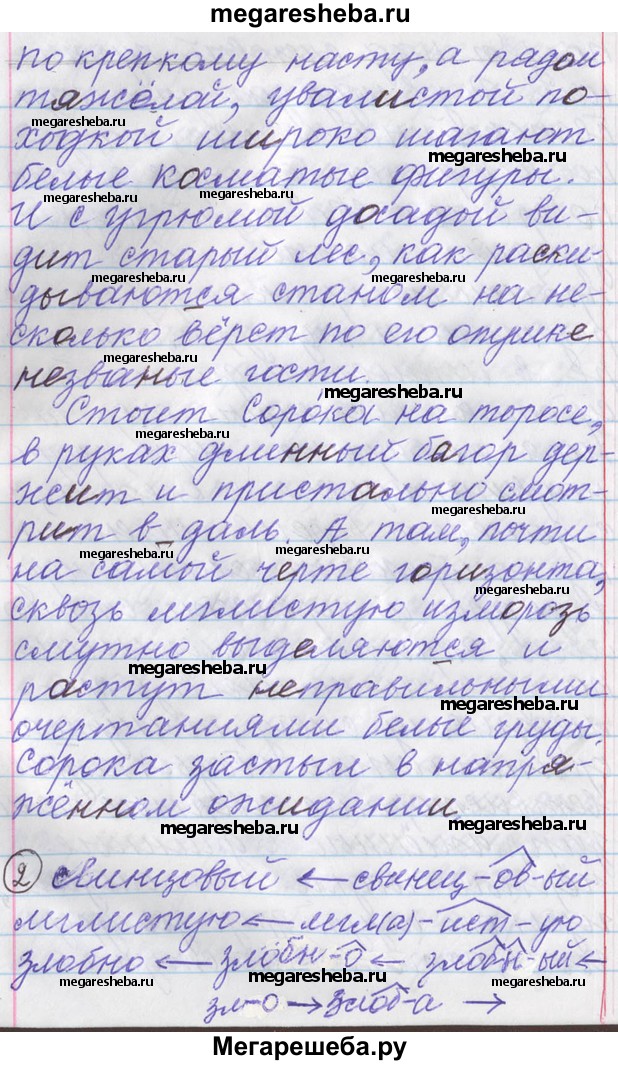 megaresheba.ru
по крепкому насту, а рядом
тяжёлой, увалистой по-
megaresheba.ru
megaresheba.ru
ходкой широко шагают
megaresheba.ru
белые косматые фигуры.
megaresheba.ru
megaresheba.ru
И с угрюмой досадой ви-
дит старый лес, как раски-
megaresheba.ru
megaresheba.ru
дываются станом на не-
сколько вёрст по его опушке
megaresheba.ru
незваные гости.
megaresheba.ru
Стоит Сорока на торосе,
megaresheba.ru
в руках длинный багор дер-
megaresheba.ru
жит и пристально смот-
рит в даль. А там, почти
megaresheba.ru
megaresheba.ru
на самой черте горизонта,
сквозь мглистую изморозь
смутно выделяются и
megaresheba.ru
растут неправильными
megaresheba.ru
очертаниями белые груды.
Сорока застыл в напря-
жённом ожидании
megaresheba.ru
megaresheba.ru
2 свинцовый ← свинец-ов-ый
мглистую ← мгл(а)-ист-ую
злобно ← злобн-о ← злоб-н-ый ←
megaresheba.ru
megaresheba.ru
зл-о → злоб-а →
Мегарешеба.ру